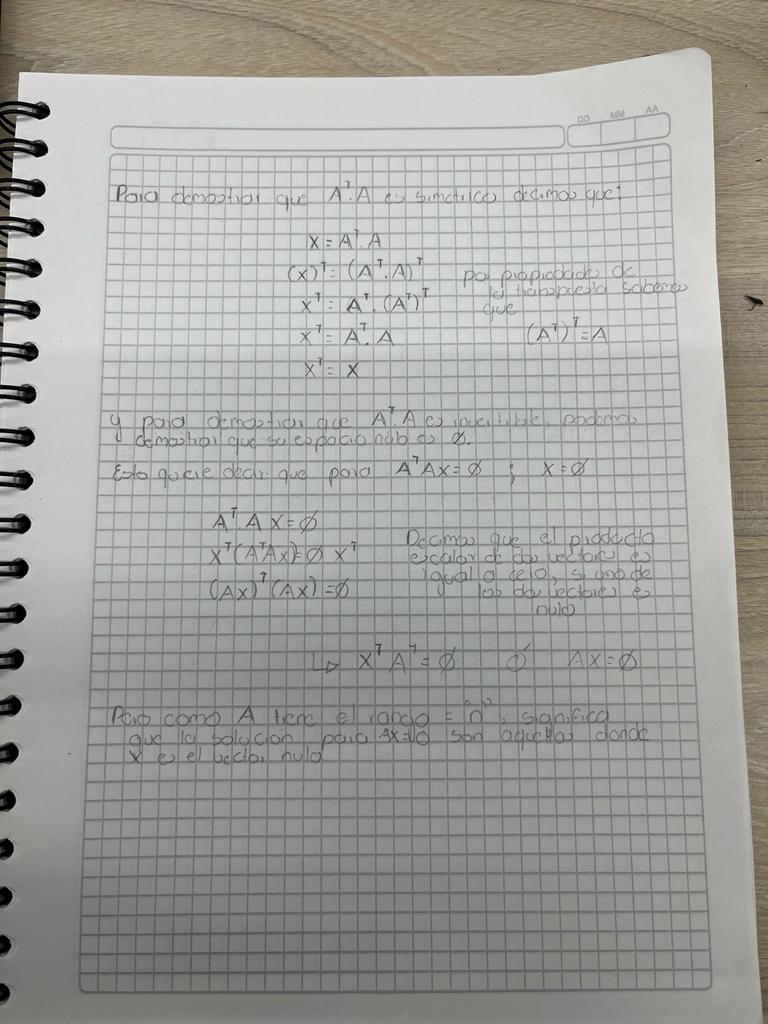 DD MM AA
Para demostrar que Aᵀ.A es simetrica decimos que:
X = Aᵀ.A
(X)ᵀ = (Aᵀ.A)ᵀ por propiedades de
la transpuesta sabemos
Xᵀ = Aᵀ.(Aᵀ)ᵀ que
Xᵀ = Aᵀ.A (Aᵀ)ᵀ = A
Xᵀ = X
y para demostrar que Aᵀ.A es invertible, podemos
demostrar que su espacio nulo es ∅.
Esto quiere decir que para AᵀAx = ∅ ; X = ∅
AᵀA X = ∅
Xᵀ(AᵀAx) = ∅ Xᵀ Decimos que el producto
escalar de dos vectores es
(Ax)ᵀ(Ax) = ∅ igual a cero, si uno de
los dos vectores es
nulo
↳ XᵀAᵀ = ∅ ó AX = ∅
Pero como A tiene el rango = "n", significa
que la solucion para AX=0 son aquellas donde
X es el vector nulo